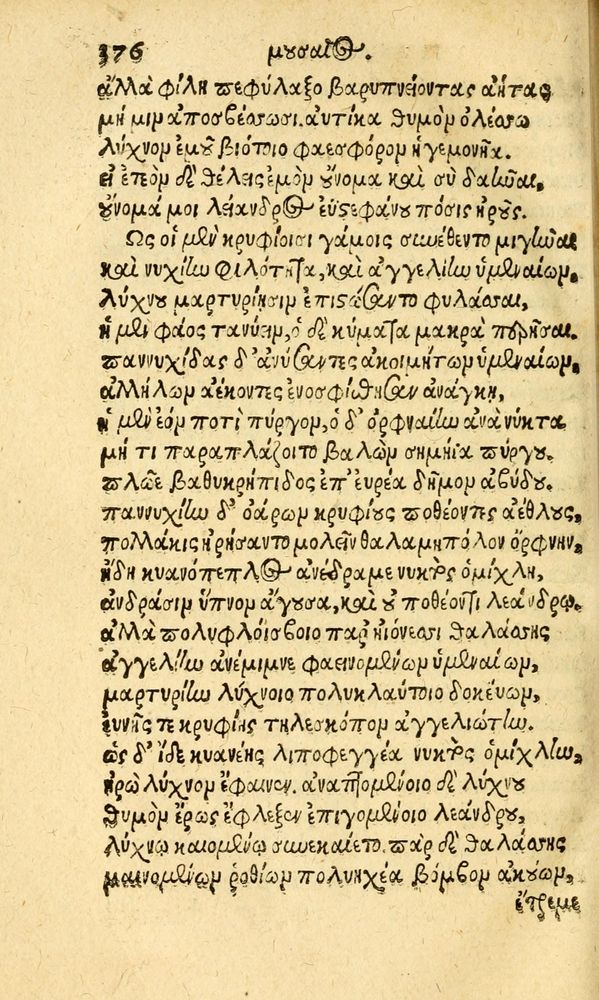 376 μουσαῖος.
ἀλλὰ φίλη πεφύλαξο βαρυπνείοντας ἀήτας,
μή μιν ἀποσβέσωσι. αὐτίκα θυμὸν ὀλέσσω
λύχνον ἐμοῦ βιότοιο φαεσφόρον ἡγεμονῆα.
εἰ ἐτεὸν δὲ θέλεις ἐμὸν οὔνομα καὶ σὺ δαῆναι,
οὔνομά μοι λείανδρος ἐϋστεφάνου πόσις ἡροῦς.
Ως οἱ μὲν κρυφίοισι γάμοις συνέθεντο μιγῆναι
καὶ νυχίην φιλότητα, καὶ ἀγγελίην ὑμεναίων,
λύχνου μαρτυρίῃσιν ἐπιστώσαντο φυλάσσαι,
ἡ μὲν φάος τανύειν, ὁ δὲ κύματα μακρὰ περῆσαι.
παννυχίδας δ' ἀνύσαντες ἀκοιμήτων ὑμεναίων,
ἀλλήλων ἀέκοντες ἐνοσφίσθησαν ἀνάγκῃ,
ἡ μὲν ἑὸν ποτὶ πύργον, ὁ δ' ὀρφναίην ἀνὰ νύκτα
μή τι παραπλάζοιτο βαλὼν σημήϊα πύργου.
πλῶε βαθυκρήπιδος ἐπ' εὐρέα δῆμον ἀβύδου.
παννυχίων δ' ὀάρων κρυφίους ποθέοντες ἀέθλους,
πολλάκις ἠρήσαντο μολεῖν θαλαμηπόλον ὄρφνην,
ἤδη κυανόπεπλος ἀνέδραμε νυκτὸς ὁμίχλη,
ἀνδράσιν ὕπνον ἄγουσα, καὶ οὐ ποθέοντι λεάνδρῳ.
ἀλλὰ πολυφλοίσβοιο παρ' ἠϊόνεσσι θαλάσσης
ἀγγελίην ἀνέμιμνε φαεινομένων ὑμεναίων,
μαρτυρίην λύχνοιο πολυκλαύτοιο δοκεύων,
εὐνῆς τε κρυφίης τηλεσκόπον ἀγγελιώτην.
ὡς δ' ἴδε κυανέης λιποφεγγέα νυκτὸς ὁμίχλην,
ἡρὼ λύχνον ἔφαινεν. ἀναπτομένοιο δὲ λύχνου
θυμὸν ἔρως ἔφλεξεν ἐπιγομένοιο λεάνδρου,
λύχνῳ καιομένῳ συνεκαίετο. πὰρ δὲ θαλάσσης
μαινομένων ῥοθίων πολυηχέα βόμβον ἀκούων,
ἔτρεμε